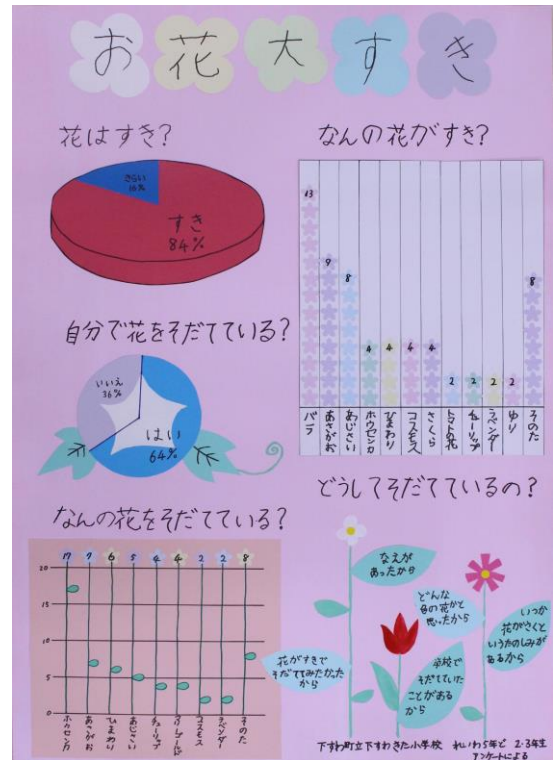 お花大すき
花はすき?
きらい
16%
すき
84%
なんの花がすき?
13
9
8
4
4
4
4
2
2
2
2
8
バラ
あさがお
あじさい
ホウセンカ
ひまわり
コスモス
さくら
トマトの花
チューリップ
ラベンダー
ゆり
そのた
自分で花をそだてている?
いいえ
36%
はい
64%
なんの花をそだてている?
17
7
6
5
4
4
2
2
8
20
15
10
5
0
ホウセンカ
あさがお
ひまわり
あじさい
チューリップ
コスモス
ラベンダー
そのた
どうしてそだてているの?
なえが
あったから
どんな
色の花かと
思ったから
いつか
花がさくと
いうたのしみが
あるから
花がすきで
そだててみたかった
から
学校で
そだてていた
ことがある
から
下すわ町立下すわきた小学校 れいわ5年ど 2・3年生
アンケートによる